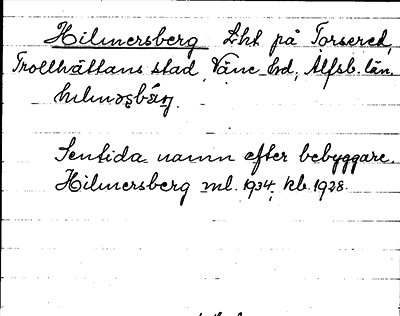 Hilmersberg Lht på Torsered,
Trollhättans stad, Väne hd, Älfsb. län.
Sentida namn efter bebyggare.
Hilmersberg ml. 1934, kb. 1928.